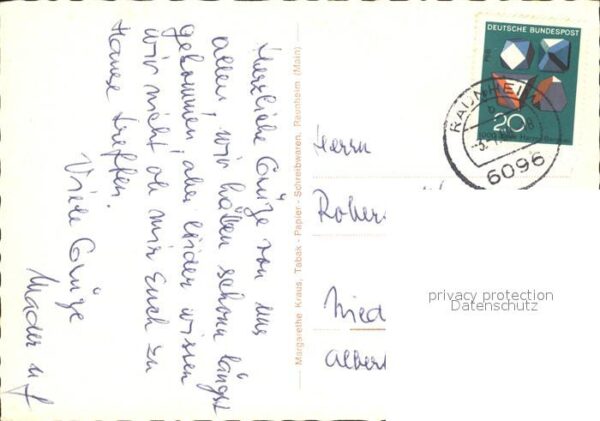 Herzliche Grüße von uns
allen, wir hätten schon längst
gekommen, aber leider wissen
wir nicht ob wir Euch zu
Hause treffen.
Viele Grüße
Margarethe Kraus, Tabak - Papier - Schreibwaren, Raunheim (Main)
DEUTSCHE BUNDESPOST
20
1000 Jahre Harzer Bergbau
RAUNHEIM
6096
Herrn
Rober
Nied
Albert
privacy protection
Datenschutz